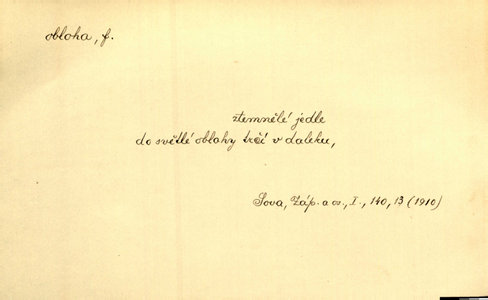 obloha, f.
ztemnělé jedle
do světlé oblohy trčí v daleku,
Sova, Záp. a os., I., 140, 13 (1910)